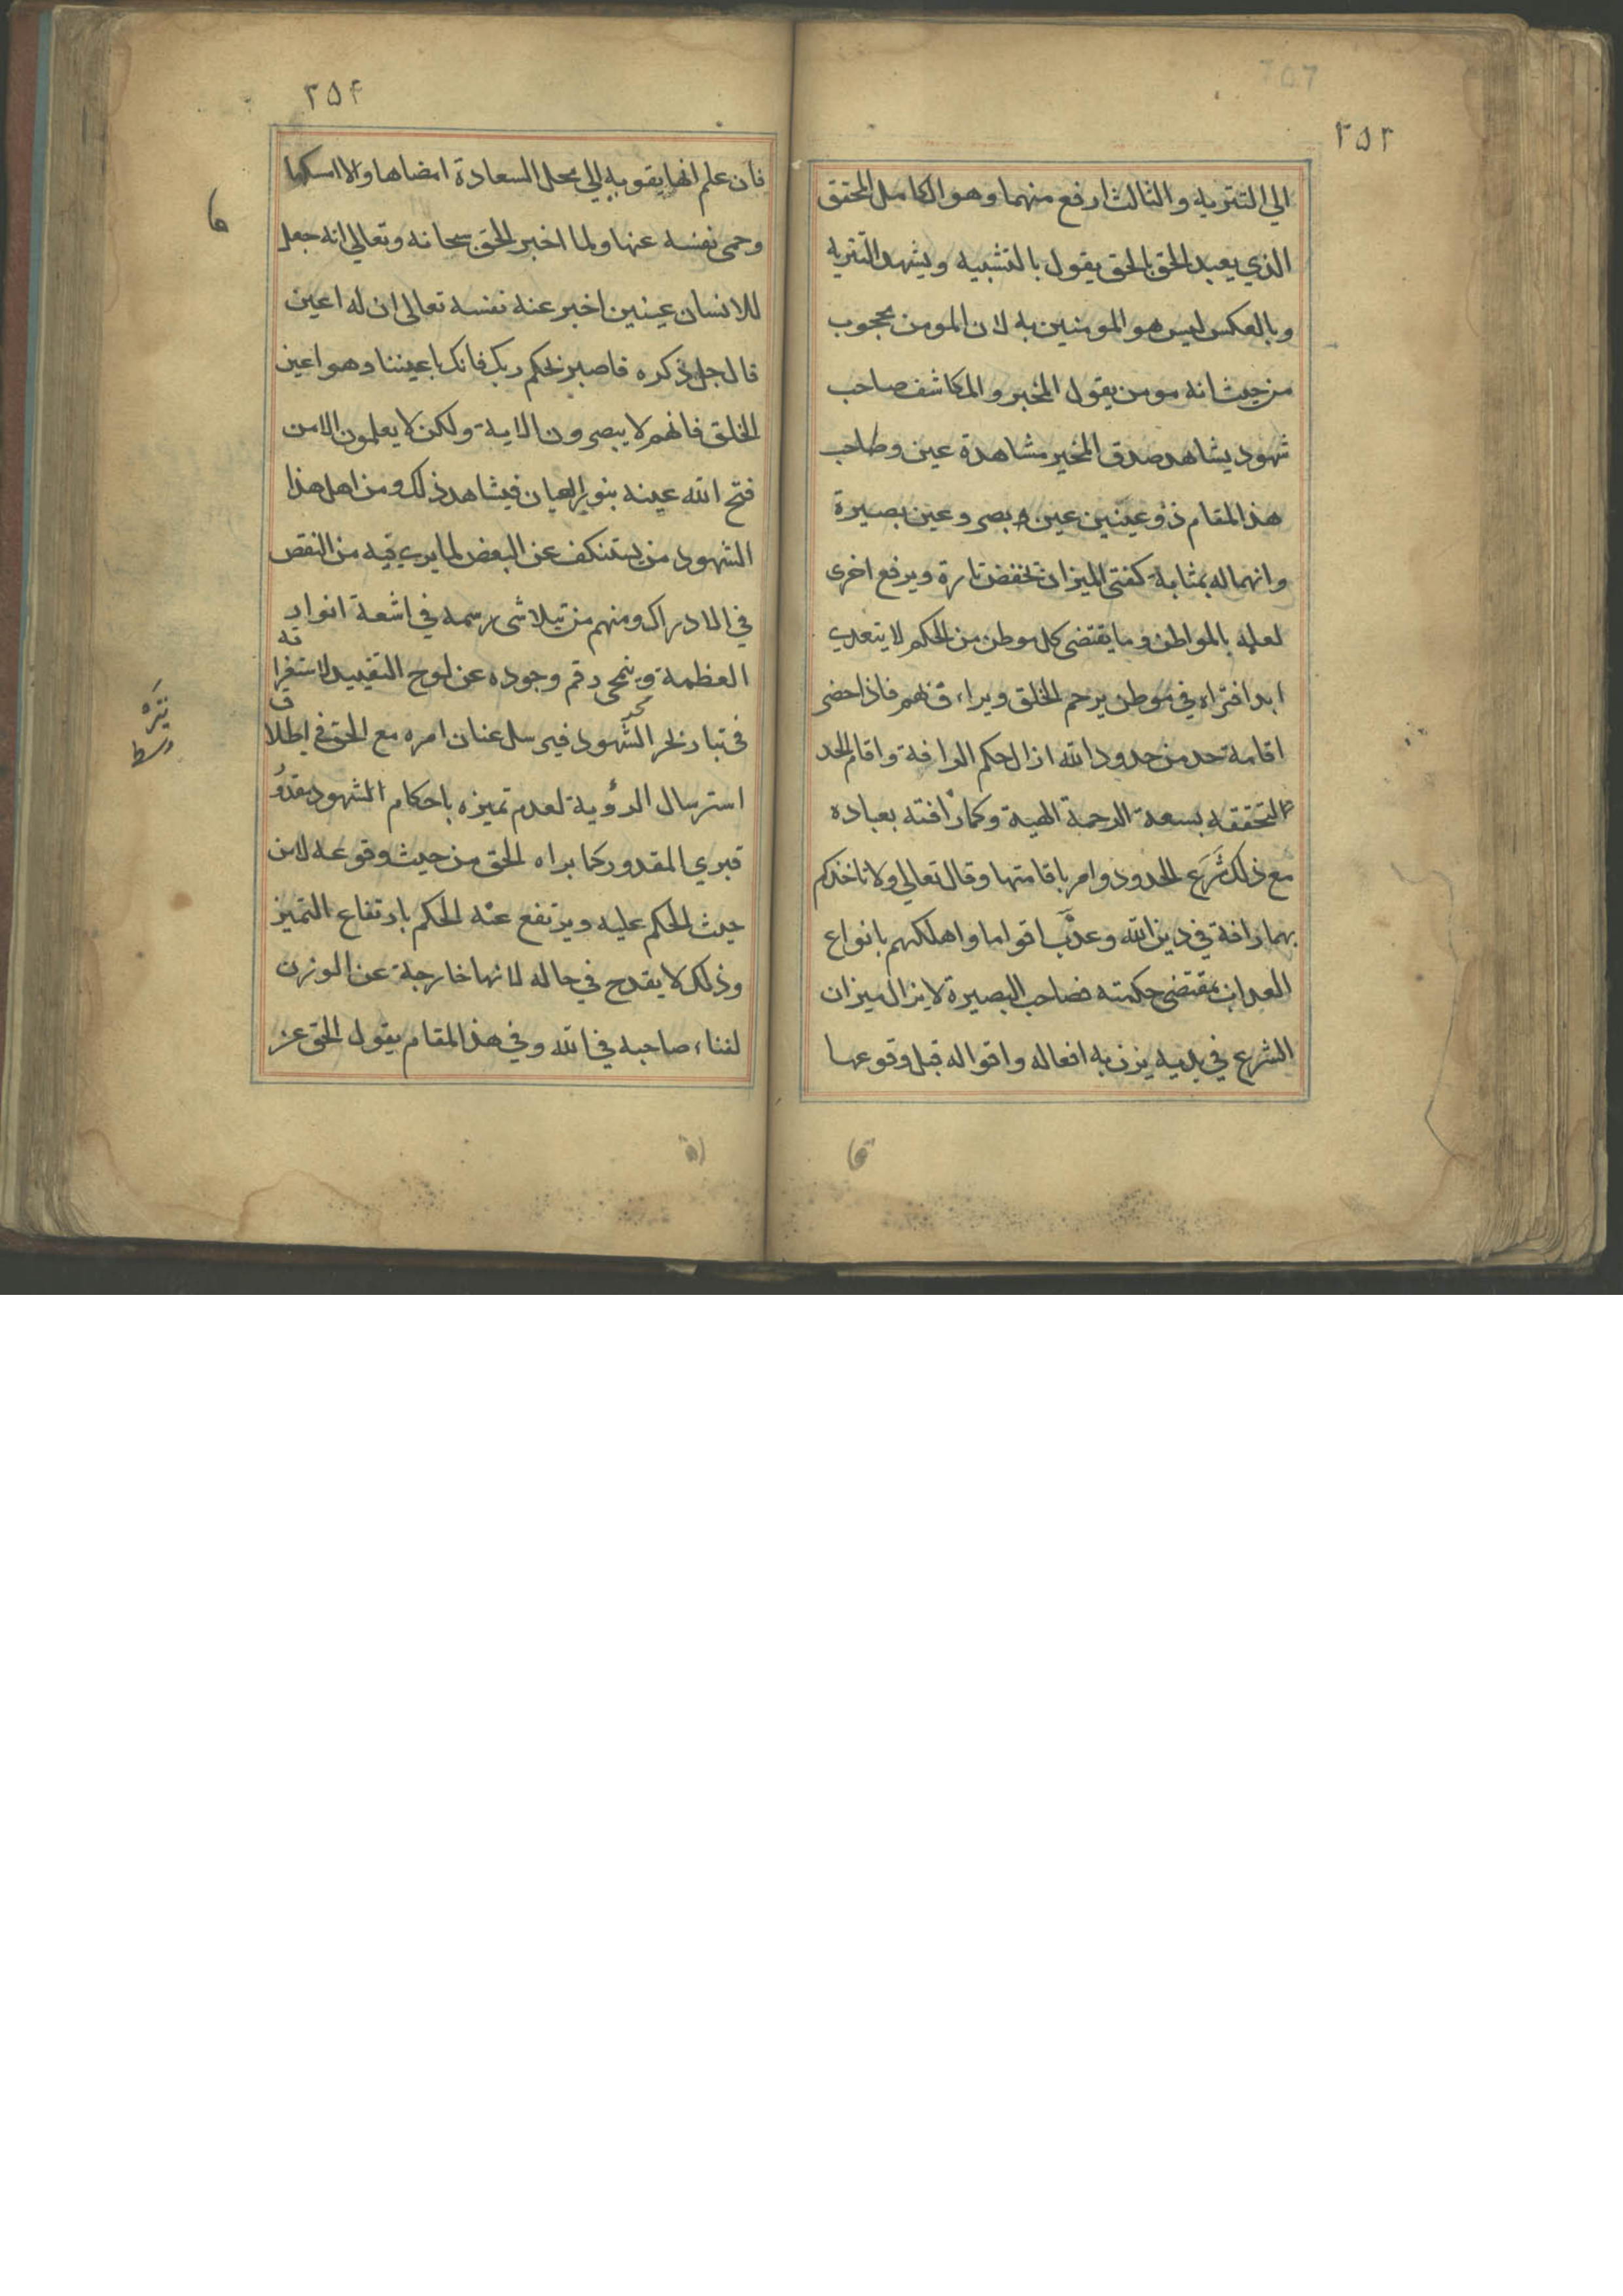 ٢٥٣
الي التنزيه والثالث ارفع منهما وهو الكامل المحقق
الذي يعبد الحق بالحق يقول بالتشبيه ويشهد التنزيه
وبالعكس ليس هو المومنين به لان المومن محجوب
من حيث انه مومن يقول المخبر والمكاشف صاحب
شهود يشاهد صدق المخبر مشاهدة عين وصاحب
هذا المقام ذو عينين عين بصر وعين بصيرة
وانهما له بمثابة كفتي الميزان تخفض تارة ويرفع اخرى
لعلمه بالمواطن وما يقتضى كل موطن من الحكم لا يتعدي
ابدا فتراه في موطن يرحم الخلق ويراء فهم فاذا حضر
اقامة حد من حدود الله ازال حكم الرافة واقام الحد
لتحققه بسعة الرحمة الهية وكمال رافته بعباده
مع ذلك شَرَع الحدود وامر باقامتها وقال تعالي ولا تاخذكم
بهما رافة في دين الله وعذَّب اقواما واهلكهم بانواع
العذاب بمقتضى حكمته فصاحب البصيرة لا يزال ميزان
الشرع في يديه يزن به افعاله واقواله قبل وقوعها
٢٥۴
فان علم انها يقو به الي محل السعادة امضاها والا امسكها
وحمى نفسه عنها ولما اخبر الحق سبحانه وتعالي انه جعل
للانسان عينين اخبر عنه نفسه تعالى ان له اعين
قال جل ذكره فاصبر لحكم ربك فانك باعيننا وهو اعين
الخلق فانهم لا يبصرون الاية ولكن لا يعلمون الا من
فتح الله عينه بنور العيان فيشاهد ذلك ومن اهل هذا
الشهود من يستنكف عن البعض لما يري فيه من النقص
في الادراك ومنهم من تتلاشى رسمه في اشعة انوار
العظمة وينمحي رقم وجوده عن لوح التقييد لاستغراقه
في تيار بحر الشهود فيرسل عنان امره مع الحق في اطلاق
استرسال الرؤية لعدم تميزه باحكام الشهود
فيري المقدور كما يراه الحق من حيث وقوعه لا من
حيث الحكم عليه ويرتفع عنه الحكم بارتفاع التميز
وذلك لا يقدح في حاله لانها خارجة عن الوزن
لفناء صاحبه في الله وفي هذا المقام يقول الحق عز